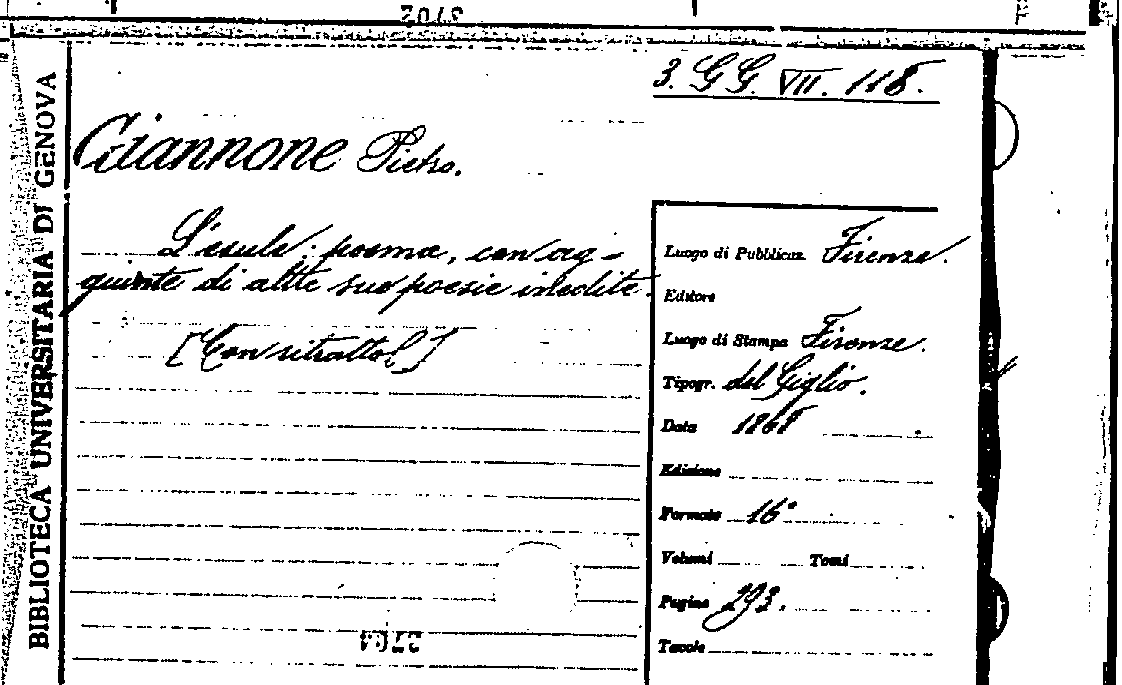 3. GG. VII. 118.
BIBLIOTECA UNIVERSITARIA DI GENOVA
Giannone Pietro.
L'esule: poema, con ag-
giunte di altre sue poesie inedite.
[Con ritratto]
Luogo di Pubblicaz. Firenze.
Editore
Luogo di Stampa Firenze.
Tipogr. del Giglio.
Data 1868
Edizione
Formato 16°
Volumi Tomi
Pagine 293.
Tavole